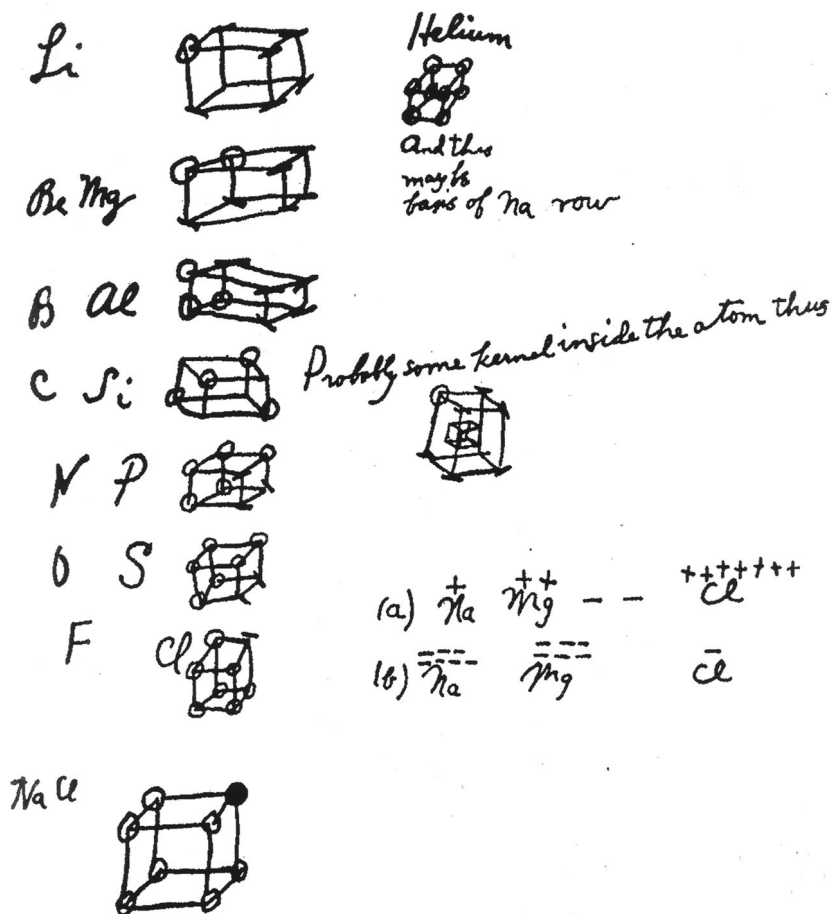 Li
Helium
And thus
may be
basis of Na row
Be Mg
B Al
C Si
Probably some kernel inside the atom thus
N P
O S
F Cl
(a) +Na ++Mg - - +++++++Cl
(b) -------Na ------Mg -Cl
Na Cl